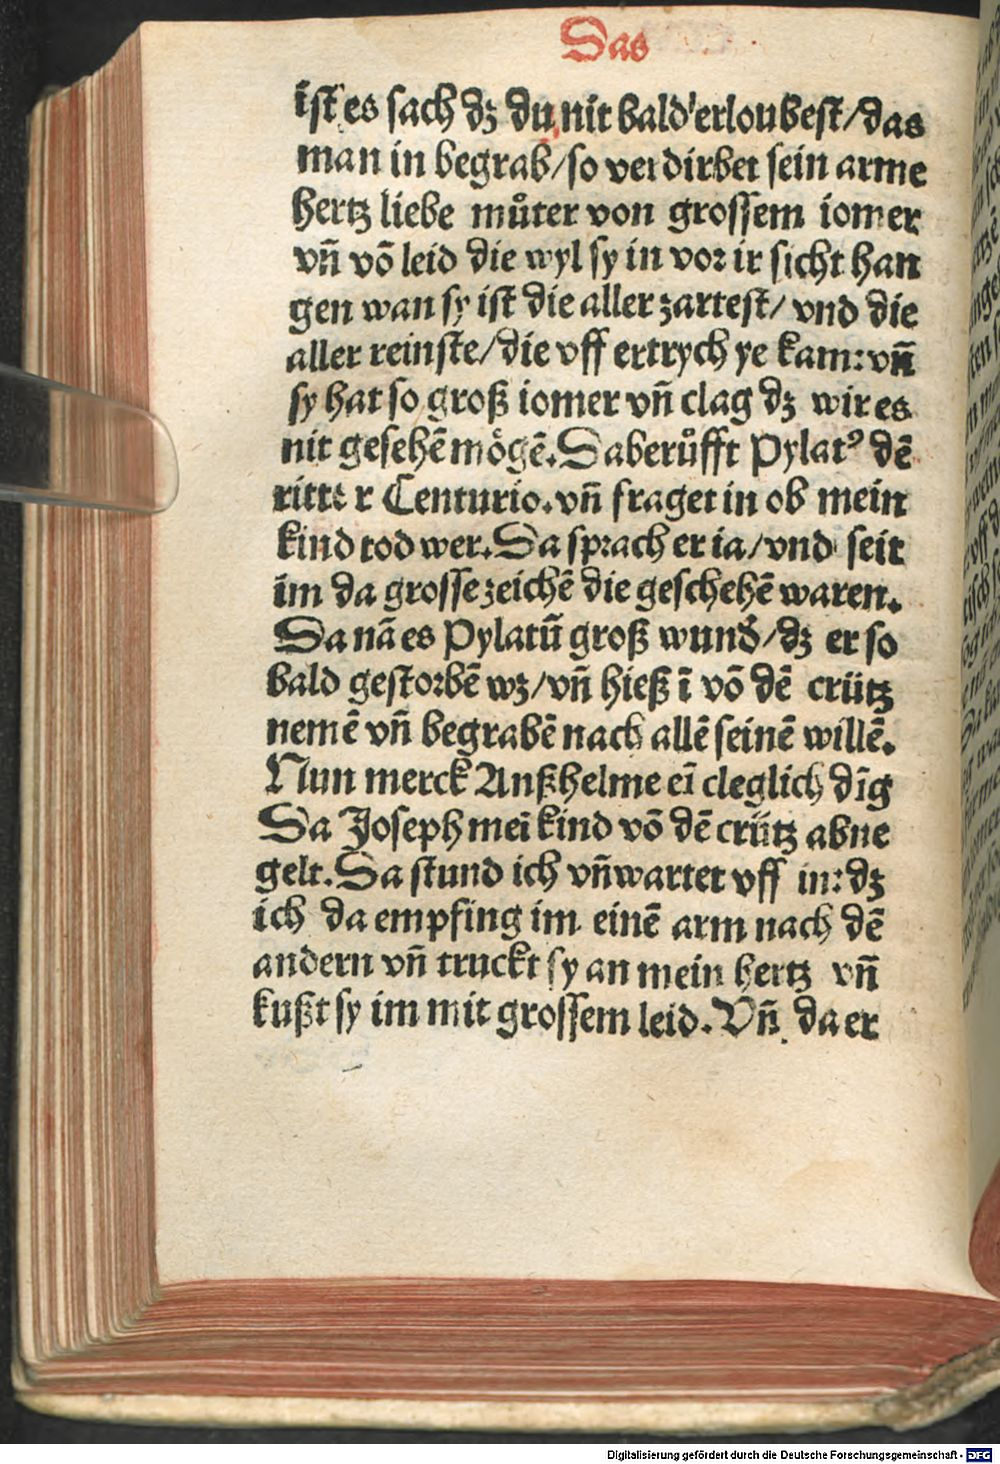 Das
ist es sach dz du nit bald erloubest/das
man in begrab/so verdirbet sein arme
hertz liebe můter von grossem iomer
vn̄ vō leid die wyl sy in vor ir sicht han
gen wan sy ist die aller zartest/ vnd die
aller reinste/die vff ertrych ye kam: vn̄
sy hat so groß iomer vn̄ clag dz wir es
nit gesehē mögē. Da berůfft Pylatꝰ dē
ritter Centurio. vn̄ fraget in ob mein
kind tod wer. Da sprach er ia/vnd seit
im da grosse zeichē die geschehē waren.
Da nā es Pylatū groß wund/dz er so
bald gestorbē wz/vn̄ hieß ī vō dē crütz
nemē vn̄ begrabē nach allē seinē willē.
Nun merck Anßhelme eī cleglich dīg
Da Joseph meī kind vō dē crütz abne
gelt. Da stund ich vn̄ wartet vff in: dz
ich da empfing im einē arm nach dē
andern vn̄ truckt sy an mein hertz vn̄
kußt sy im mit grossem leid. Vn̄ da er
Digitalisierung gefördert durch die Deutsche Forschungsgemeinschaft - DFG